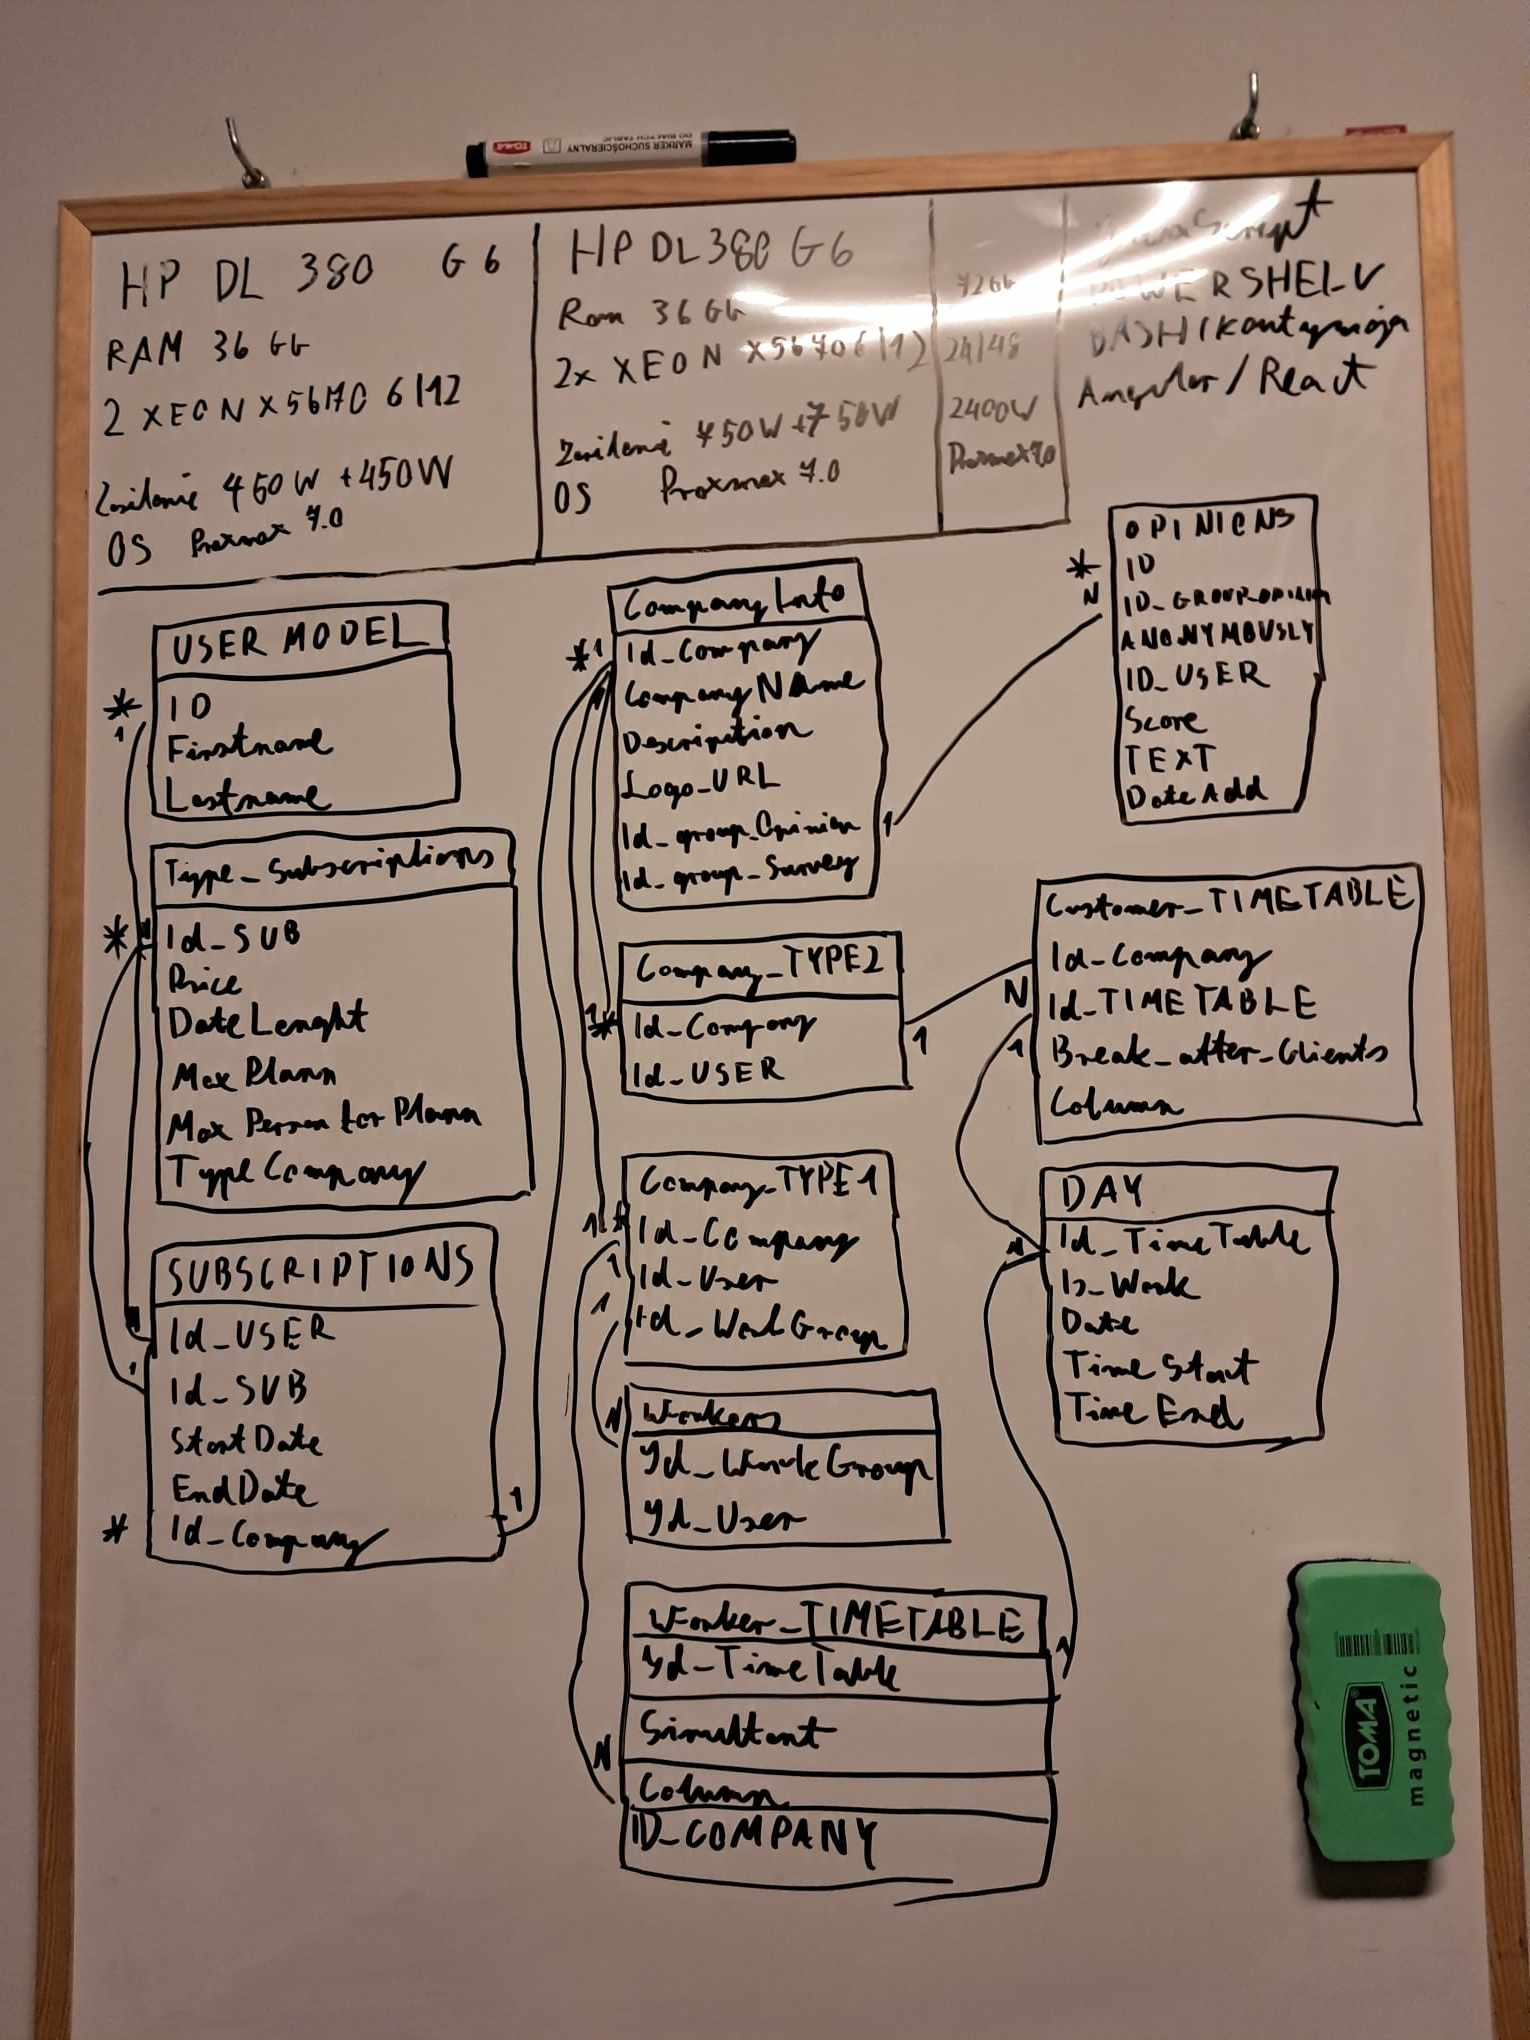 MARKER SUCHOŚCIERALNY
TOMA
HP DL 380 G6
RAM 36 Gb
2 XEON X5670 6/12
Zasilanie 450W +450W
OS Proxmox 7.0
HP DL380 G6
Ram 36 Gb
2x XEON X5670 6/12
Zasilanie 750W +750W
OS Proxmox 7.0
72Gb
24/48
2400W
Proxmox 7.0
POWERSHELL
BASH / kontynuacja
Angular / React
USER MODEL
* ID
1
Firstname
Lastname
Type_Subscriptions
* 1 Id_SUB
Price
DateLenght
Max Plann
Max Person for Plann
TypeCompany
SUBSCRIPTIONS
Id_USER
1 Id_SUB
StartDate
EndDate
1
* Id_Company
CompanyInfo
* 1 Id_Company
1 CompanyNAme
Description
Logo_URL
Id_group_Opinion 1
Id_group_Survey
Company_TYPE2
1 * Id_Company
1
Id_USER
Company_TYPE1
1 * Id_Company
1 Id_User
1 Id_WorkGroup
Workers
N
Yd_WorkGroup
Yd_User
Worker_TIMETABLE
Yd_TimeTable 1
Simultant
N
Column
ID_COMPANY
OPINIONS
* ID
N ID_GROUP_OPINION
ANONYMOUSLY
ID_USER
Score
TEXT
DateAdd
Customer_TIMETABLE
Id_Company
N Id_TIMETABLE
1 Break_after_Clients
Column
DAY
1 Id_TimeTable
Is_Work
Date
Time Start
Time End
TOMA
magnetic